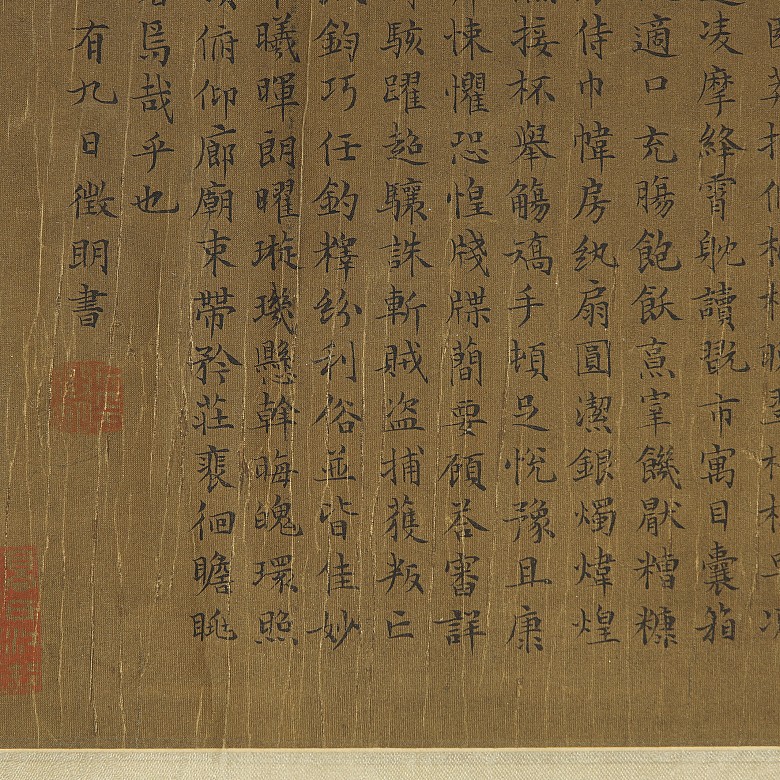 莽抽條枇杷晚翠梧桐早凋
凌摩絳霄耽讀翫市寓目囊箱
適口充腸飽飫烹宰饑厭糟糠
侍巾幃房紈扇圓潔銀燭煒煌
接杯舉觴矯手頓足悅豫且康
悚懼恐惶牋牒簡要顧答審詳
駭躍超驤誅斬賊盜捕獲叛亡
鈞巧任釣釋紛利俗並皆佳妙
曦暉朗曜璇璣懸斡晦魄環照
俯仰廊廟束帶矜莊裴徊瞻眺
焉哉乎也
有九日徵明書